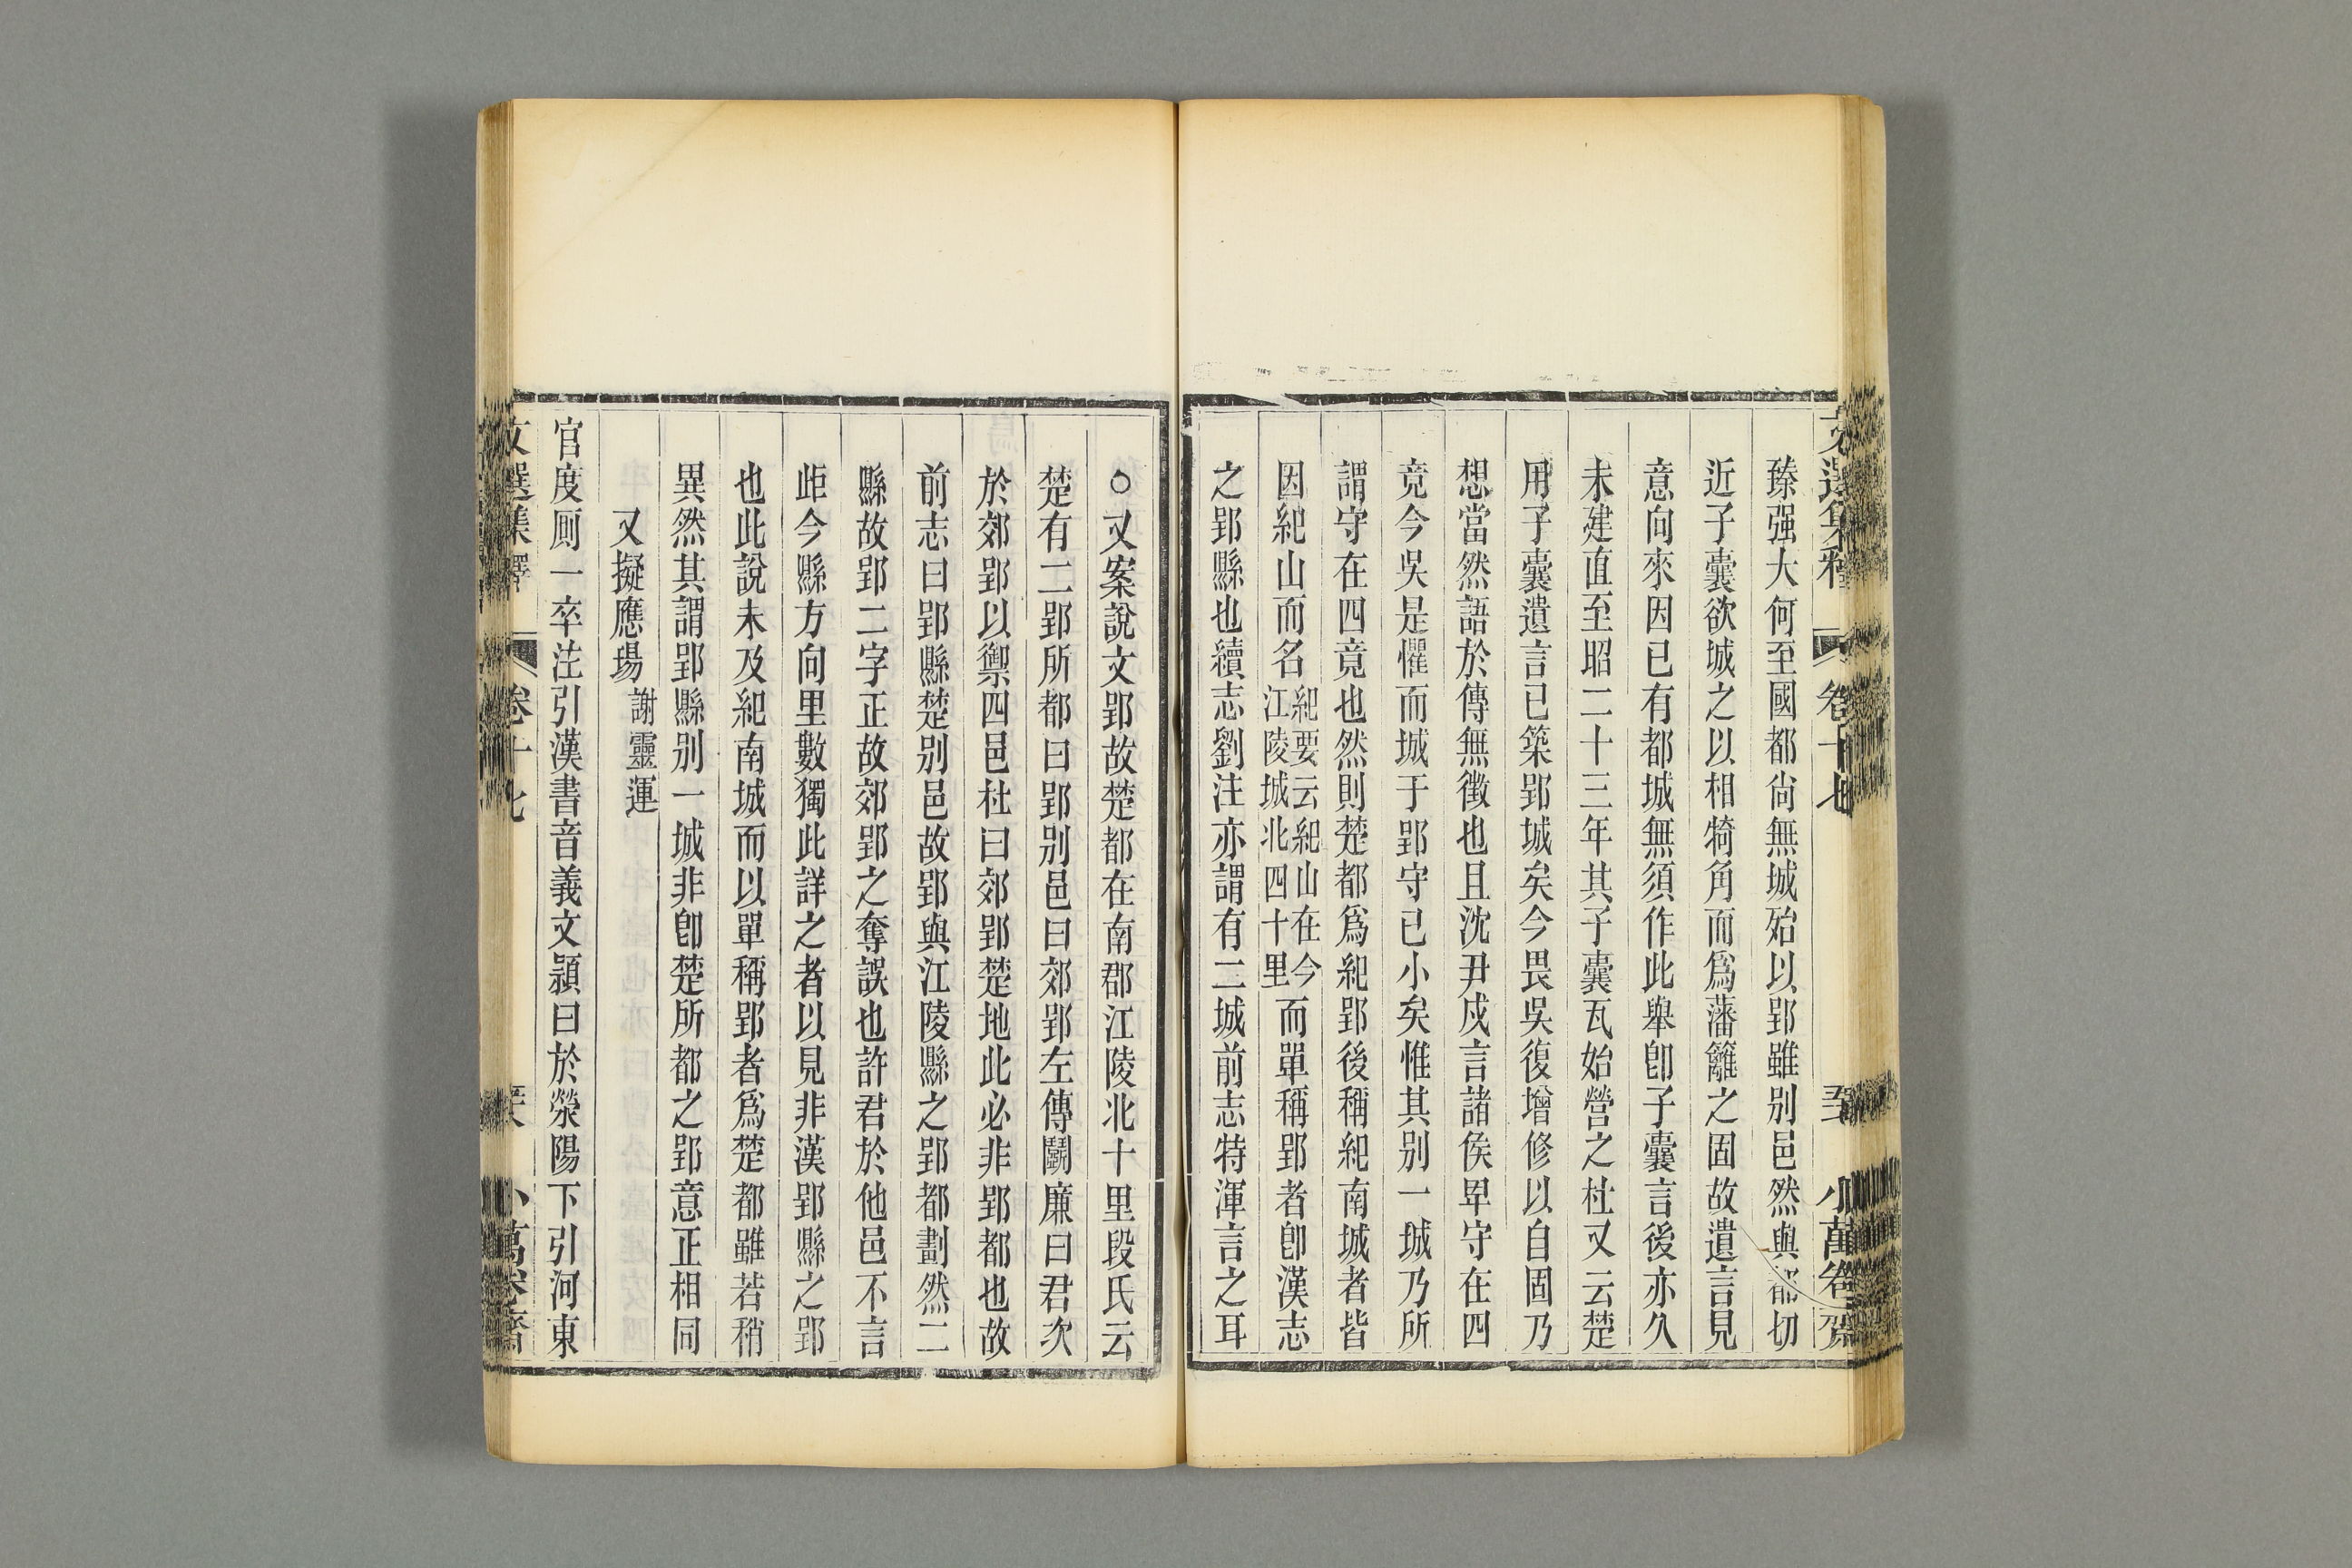 臻强大何至國都尙無城殆以郢雖別邑然與都切
近子囊欲城之以相犄角而爲藩籬之固故遺言見
意向來因已有都城無須作此舉卽子囊言後亦久
未建直至昭二十三年其子囊瓦始營之杜又云楚
用子囊遺言已築郢城矣今畏吳復增修以自固乃
想當然語於傳無徵也且沈尹戍言諸侯卑守在四
竟今吳是懼而城于郢守已小矣惟其別一城乃所
謂守在四竟也然則楚都爲紀郢後稱紀南城者皆
因紀山而名紀要云紀山在今江陵城北四十里而單稱郢者卽漢志
之郢縣也續志劉注亦謂有二城前志特渾言之耳
○又案說文郢故楚都在南郡江陵北十里段氏云
楚有二郢所都曰郢別邑曰郊郢左傳鬭廉曰君次
於郊郢以禦四邑杜曰郊郢楚地此必非郢都也故
前志曰郢縣楚別邑故郢與江陵縣之郢都劃然二
縣故郢二字正故郊郢之奪誤也許君於他邑不言
歫今縣方向里數獨此詳之者以見非漢郢縣之郢
也此說未及紀南城而以單稱郢者爲楚都雖若稍
異然其謂郢縣別一城非卽楚所都之郢意正相同
又擬應瑒 謝靈運
官度厠一卒注引漢書音義文潁曰於滎陽下引河東
文選集釋 卷十七 小萬卷齋